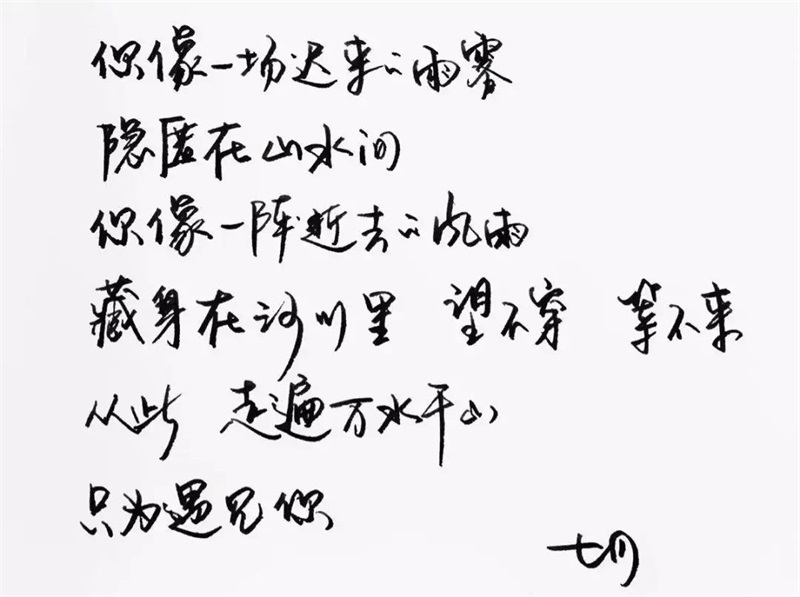 你像一场迟来的雨雾
隐匿在山水间
你像一阵逝去的风雨
藏身在河川里 望不穿 等不来
从此 走遍万水千山
只为遇见你
七月